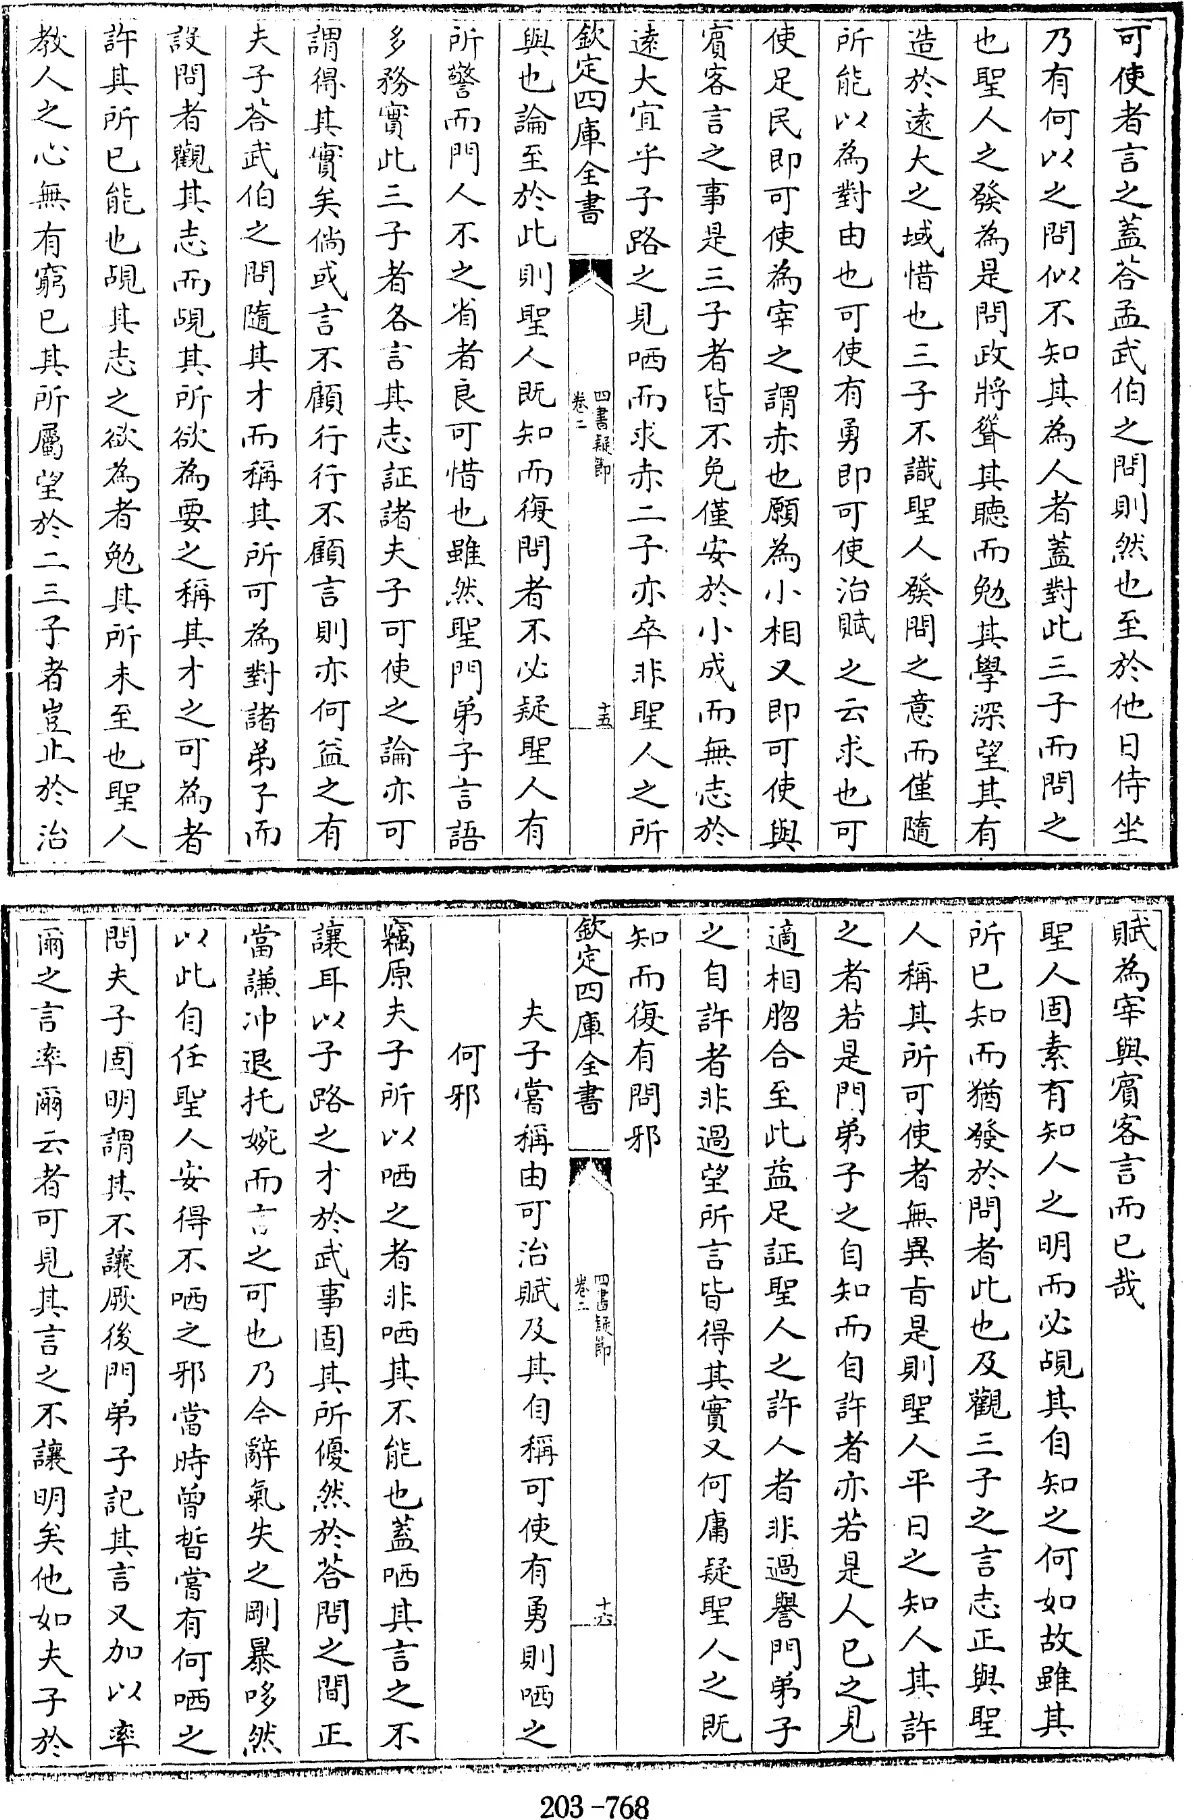 可使者言之蓋荅孟武伯之問則然也至於他日侍坐
乃有何以之問似不知其為人者蓋對此三子而問之
也聖人之發為是問政將聳其聽而勉其學深望其有
造於遠大之域惜也三子不識聖人發問之意而僅隨
所能以為對由也可使有勇即可使治賦之云求也可
使足民即可使為宰之謂赤也願為小相又即可使與
賓客言之事是三子者皆不免僅安於小成而無志於
遠大宜乎子路之見哂而求赤二子亦卒非聖人之所
欽定四庫全書
四書疑節
卷二
十五
與也論至於此則聖人既知而復問者不必疑聖人有
所警而門人不之省者良可惜也雖然聖門弟子言語
多務實此三子者各言其志証諸夫子可使之論亦可
謂得其實矣倘或言不顧行行不顧言則亦何益之有
夫子荅武伯之問隨其才而稱其所可為對諸弟子而
設問者觀其志而覘其所欲為要之稱其才之可為者
許其所已能也覘其志之欲為者勉其所未至也聖人
教人之心無有窮已其所屬望於二三子者豈止於治
賦為宰與賓客言而已哉
聖人固素有知人之明而必覘其自知之何如故雖其
所已知而猶發於問者此也及觀三子之言志正與聖
人稱其所可使者無異旨是則聖人平日之知人其許
之者若是門弟子之自知而自許者亦若是人已之見
適相脗合至此益足証聖人之許人者非過譽門弟子
之自許者非過望所言皆得其實又何庸疑聖人之既
知而復有問邪
欽定四庫全書
四書疑節
卷二
十六
夫子嘗稱由可治賦及其自稱可使有勇則哂之
何邪
竊原夫子所以哂之者非哂其不能也蓋哂其言之不
讓耳以子路之才於武事固其所優然於荅問之間正
當謙冲退托婉而言之可也乃今辭氣失之剛暴哆然
以此自任聖人安得不哂之邪當時曾晳嘗有何哂之
問夫子固明謂其不讓厥後門弟子記其言又加以率
爾之言率爾云者可見其言之不讓明矣他如夫子於
203-768